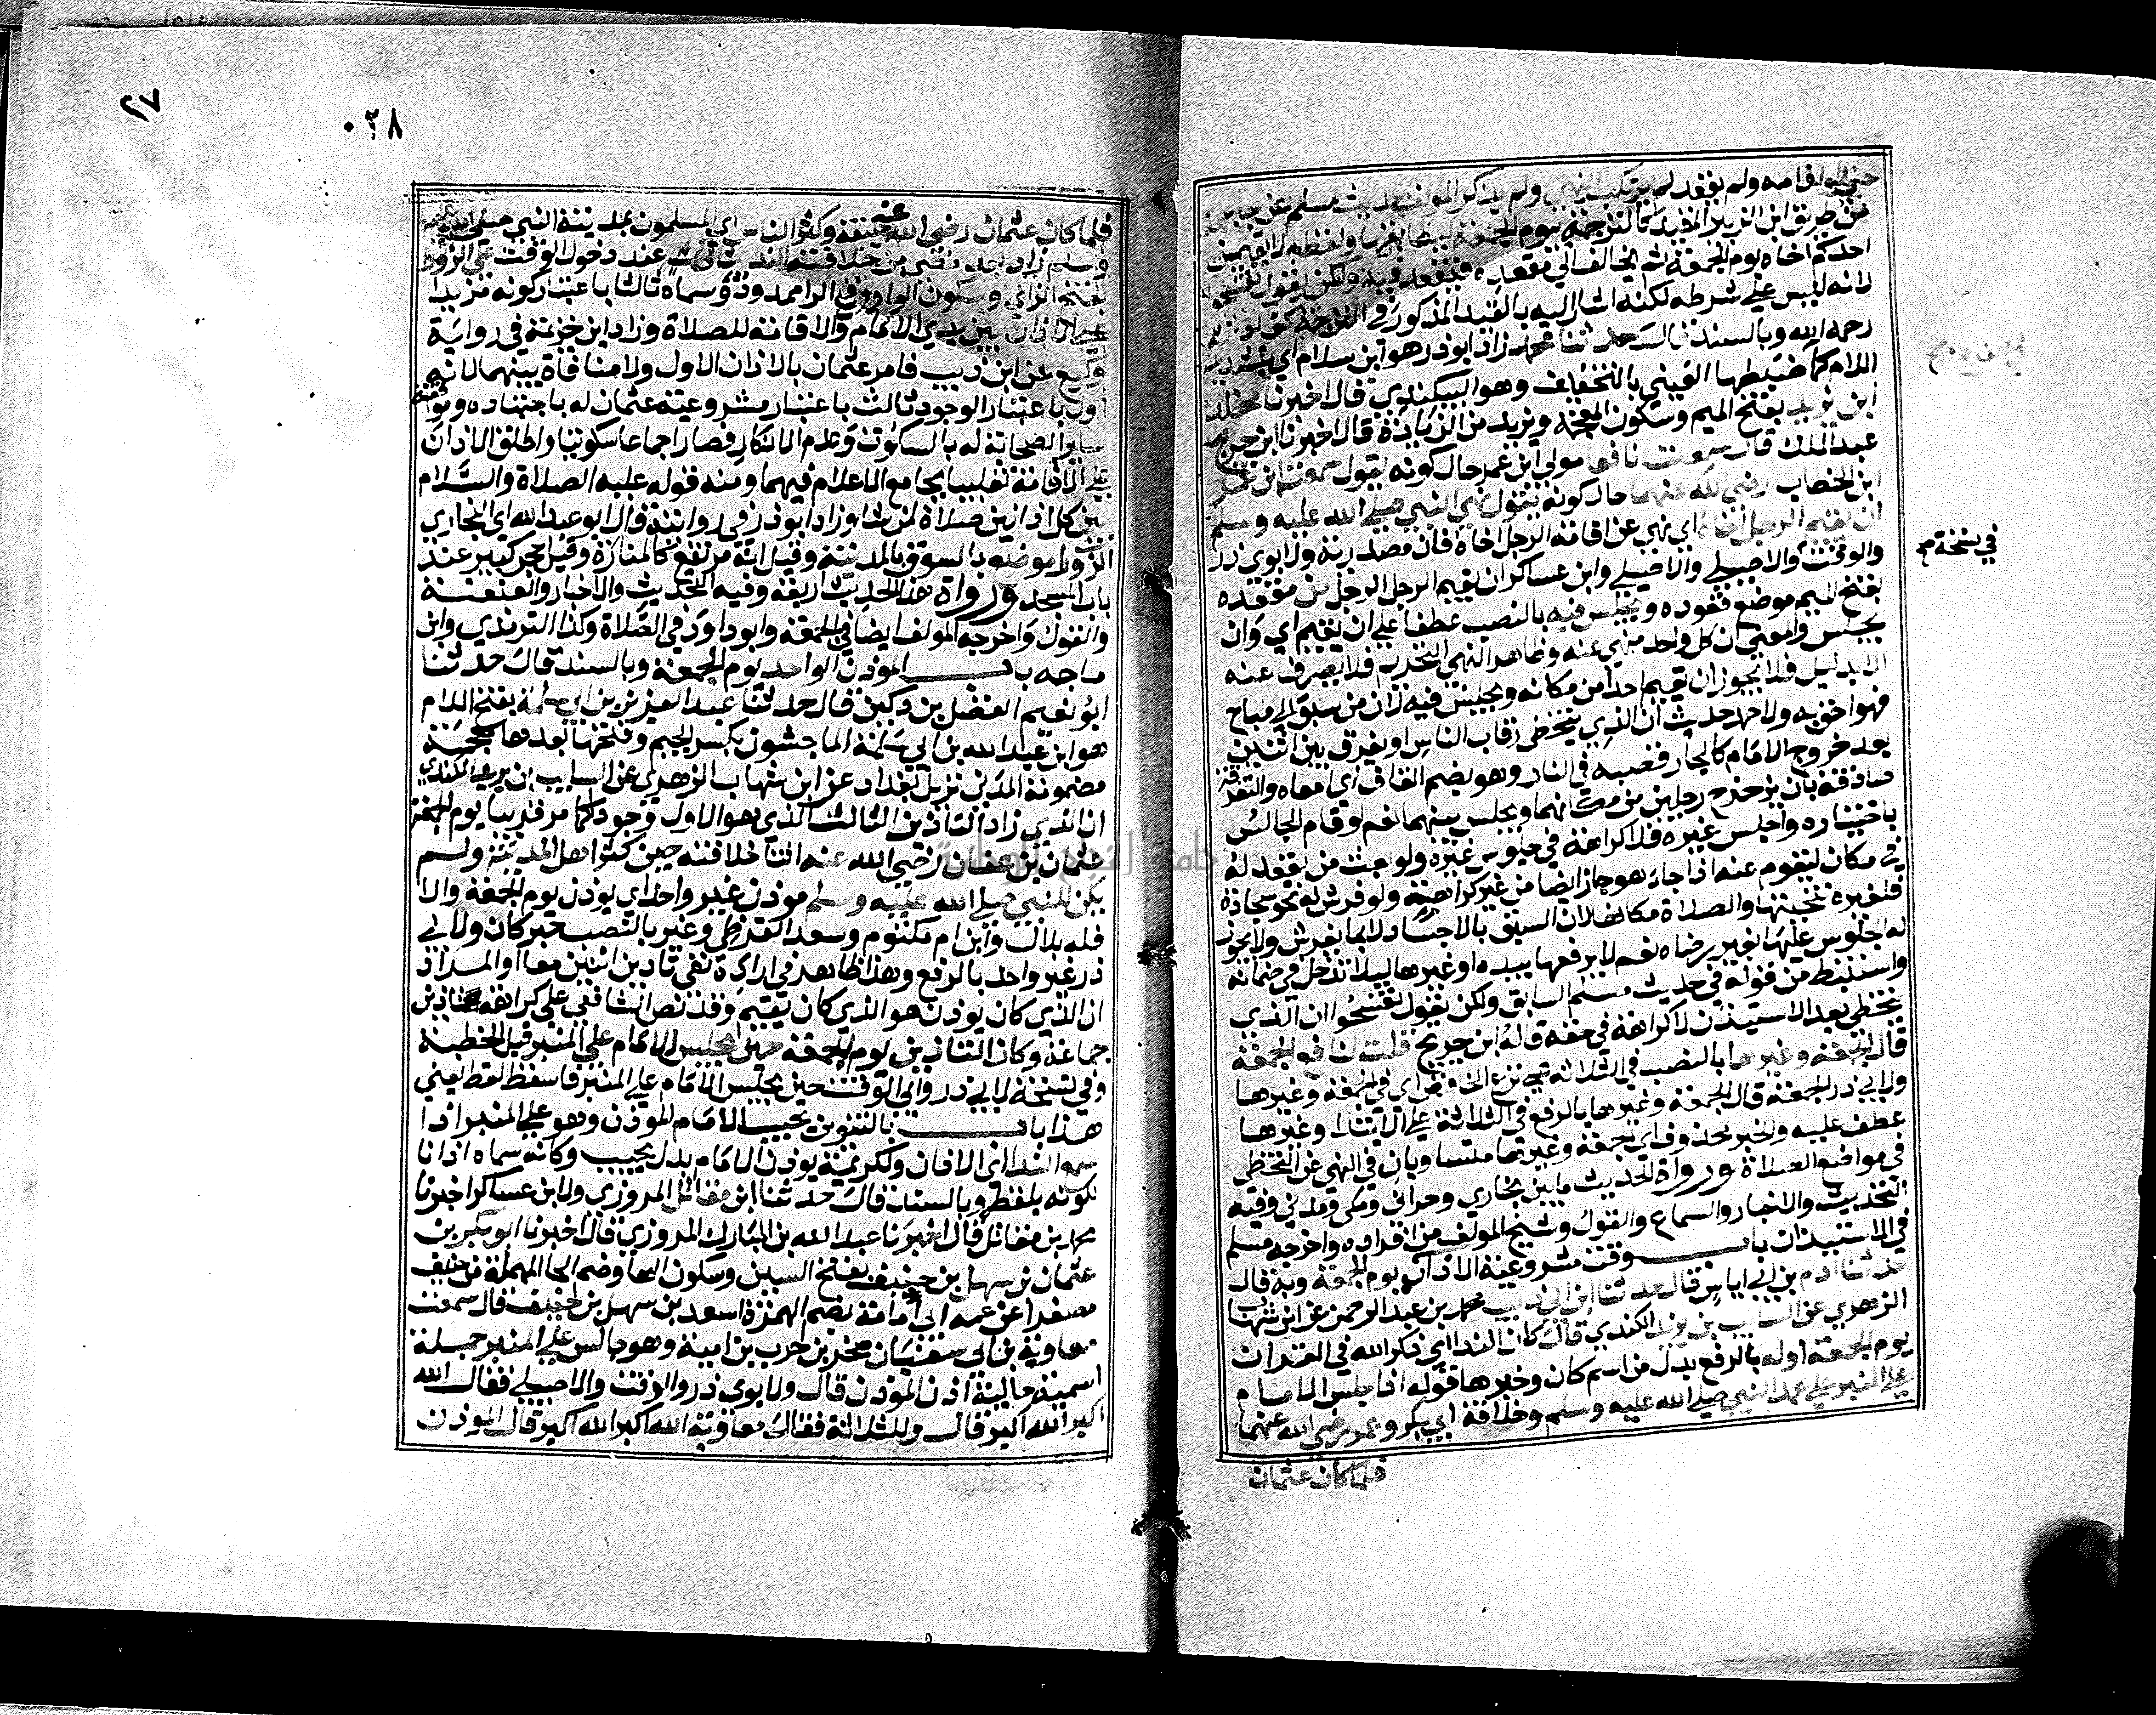 من طريق ابن الزبير المقيد كالترجمة بيوم الجمعة
احدكم اخاه يوم الجمعة ثم يخالف الي مقعده فيقعد فيه ولكن يقول تفسحوا
لانه ليس علي شرطه لكنه اشار اليه بالقيد المذكور في الترجمة
رحمه الله وبالسند قال حدثنا محمد زاد ابوذر هو ابن سلام اي بتشديد
اللام كما ضبطها العيني بالتخفيف وهو البيكندي قال اخبرنا مخلد
ابن يزيد بفتح الميم وسكون المعجمة ويزيد من الزيادة قال اخبرنا ابن جريج
عبد الملك قال سمعت نافعا مولي ابن عمر حال كونه يقول سمعت ابن عمر
ابن الخطاب رضي الله عنهما حال كونه يقول نهي النبي صلي الله عليه وسلم
ان يقيم الرجل اخاه اي نهي عن اقامة الرجل اخاه فان مصدرية ولابوي ذر
والوقت والاصيلي وابن عساكر ان يقيم الرجل الرجل من مقعده
بفتح الميم موضع قعوده ويجلس فيه بالنصب عطفا علي ان يقيم اي وان
يجلس والمعني ان كل واحد منهي عنه وظاهر النهي التحريم فلا يصرف عنه
الا بدليل فلا يجوز ان يقيم احدا من مكانه ويجلس فيه لان من سبق الي مباح
فهو احق به ولاحمد حديث ان الذي يتخطى رقاب الناس او يفرق بين اثنين
بعد خروج الامام كالجار قصبه في النار وهو بضم القاف اي امعاه والتفرقة
صادقة بان يزحزح رجلين من مكانهما ويجلس بينهما نعم لو قام الجالس
باختياره واجلس غيره فلا كراهة في جلوس غيره ولو بعث من يقعد له
في مكان ليقوم عنه اذا جاء هو جاز ايضا من غير كراهة ولو فرش له نحو سجادة
فلغيره تنحيتها والصلاة مكانها لان السبق بالاجساد لا بما يفرش ولا يجوز
له الجلوس عليها بغير رضاه نعم لا يرفعها بيده او غيرها ليلا تدخل في ضمانه
واستنبط من قوله في حديث مسلم السابق ولكن يقول تفسحوا ان الذي
يتخطى بعد الاستيذان لا كراهة في حقه قاله ابن جريج قلت لنافع الجمعة
قال الجمعة وغيرها بالنصب في الثلاثة علي نزع الخافض اي في الجمعة وغيرها
ولابي ذر الجمعة قال الجمعة وغيرها بالرفع في الثلاثة علي الابتدا وغيرها
عطف عليه والخبر محذوف اي الجمعة وغيرها متساويان في النهي عن التخطي
في مواضع الصلاة ورواة الحديث ما بين بخاري وحراني ومكي ومدني وفيه
التحديث والاخبار والسماع والقول وشيخ المولف من افراده واخرجه مسلم
في الاستيذان باب وقت مشروعية الاذان يوم الجمعة وبه قال
حدثنا ادم بن ابي اياس قال حدثنا ابن ابي ذيب محمد بن عبد الرحمن عن ابن شهاب
الزهري عن السايب بن يزيد الكندي قال كان الندا اي ذكر الله في القران
يوم الجمعة اوله بالرفع بدل من اسم كان وخبرها قوله اذا جلس الامام
علي المنبر علي عهد النبي صلي الله عليه وسلم وخلافة ابي بكر وعمر رضي الله عنهما
فلما كان عثمان
في نسخة
٢٧
٠٢٨
فلما كان عثمان رضي الله عنه خليفة وكثر الناس اي المسلمون بمدينة النبي صلي الله عليه
وسلم زاد بعد مضي من خلافته الندا الثالث عند دخول الوقت علي الزورا
بفتح الزاي وسكون الواو وفتح الرا ممدودة وسماه ثالثا باعتبار كونه مزيدا
علي الاذان بين يدي الامام والاقامة للصلاة وزاد ابن خزيمة في رواية
وكيع عن ابن ذيب فامر عثمان بالاذان الاول ولا منافاة بينهما لانه
اول باعتبار الوجود ثالث باعتبار مشروعية عثمان له باجتهاده وموافقة
ساير الصحابة له بالسكوت وعدم الانكار فصار اجماعا سكوتيا واطلق الاذان
علي الاقامة تغليبا بجامع الاعلام فيهما ومنه قوله عليه الصلاة والسلام
بين كل اذانين صلاة لمن شا وزاد ابوذر في روايته قال ابو عبد الله اي البخاري
الزورا موضع بالسوق بالمدينة وقيل انه مرتفع كالمنارة وقيل حجر كبير عند
باب المسجد ورواة هذا الحديث اربعة وفيه التحديث والاخبار والعنعنة
والقول واخرجه المولف ايضا في الجمعة وابو داود في الصلاة وكذا الترمذي وابن
ماجه باب الموذن الواحد يوم الجمعة وبالسند قال حدثنا
ابو نعيم الفضل بن دكين قال حدثنا عبد العزيز بن ابي سلمة بفتح اللام
هو ابن عبد الله بن ابي سلمة الماجشون بكسر الجيم وفتحها بعدها معجمة
مضمومة المدني نزيل بغداد عن ابن شهاب الزهري عن السايب بن يزيد الكندي
ان الذي زاد التاذين الثالث الذي هو الاول وجودا كما مر قريبا يوم الجمعة
عثمان بن عفان رضي الله عنه اثنا خلافته حين كثر اهل المدينة ولم
يكن للنبي صلي الله عليه وسلم موذن غير واحد اي يوذن يوم الجمعة والا
فله بلال وابن ام مكتوم وسعد القرظي وغير بالنصب خبر كان ولابي
ذر غير واحد بالرفع وهذا ظاهر في ارادة نفي تاذين اثنين معا او المراد
ان الذي كان يوذن هو الذي كان يقيم وقد نص الشافعي علي كراهة تاذين
جماعة وكان التاذين يوم الجمعة حين يجلس الامام علي المنبر قبل الخطبة
وفي نسخة لابي ذر وابي الوقت حين يجلس الامام علي المنبر فاسقط لفظ يعني
هذا باب بالتنوين يجيب الامام الموذن وهو علي المنبر اذا
سمع الندا اي الاذان ولكريمة يوذن الامام بدل يجيب وكانه سماه اذانا
لكونه بلفظه وبالسند قال حدثنا ابن مقاتل المروزي ولابن عساكر اخبرنا
محمد بن مقاتل قال اخبرنا عبد الله بن المبارك المروزي قال اخبرنا ابو بكر بن
عثمان بن سهل بن حنيف بفتح السين وسكون الها وضم الحا المهملة من حنيف
مصغرا عن عمه ابي امامة بضم الهمزة اسعد بن سهل بن حنيف قال سمعت
معاوية بن ابي سفيان صخر بن حرب بن امية وهو جالس علي المنبر جملة
اسمية حالية اذن الموذن قال ولابوي ذر والوقت والاصيلي فقال الله
اكبر الله اكبر قال وللثلاثة فقال معاوية الله اكبر الله اكبر قال الموذن